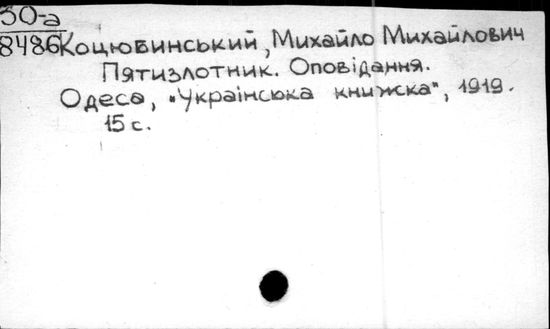 30-а
8486
Коцюбинський, Михайло Михайлович
Пятизлотник. Оповідання.
Одеса, "Украінська книжска", 1919.
15 с.